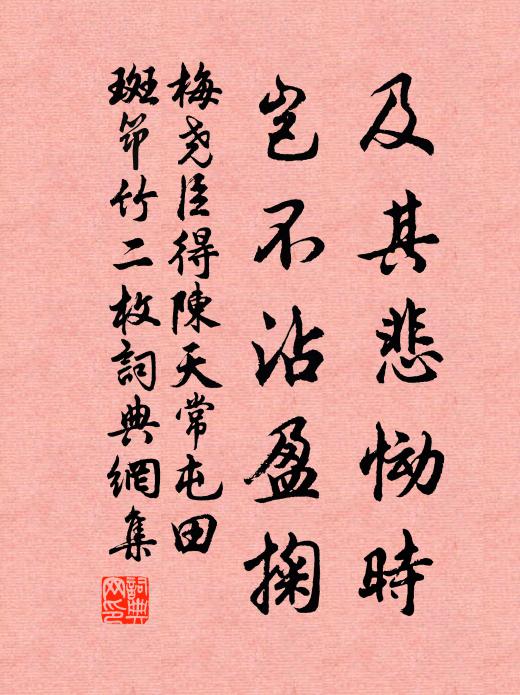 及其悲恸時
豈不沾盈掬
梅堯臣得陳天常屯田
斑笻竹二枚詞典網集
詞典网印